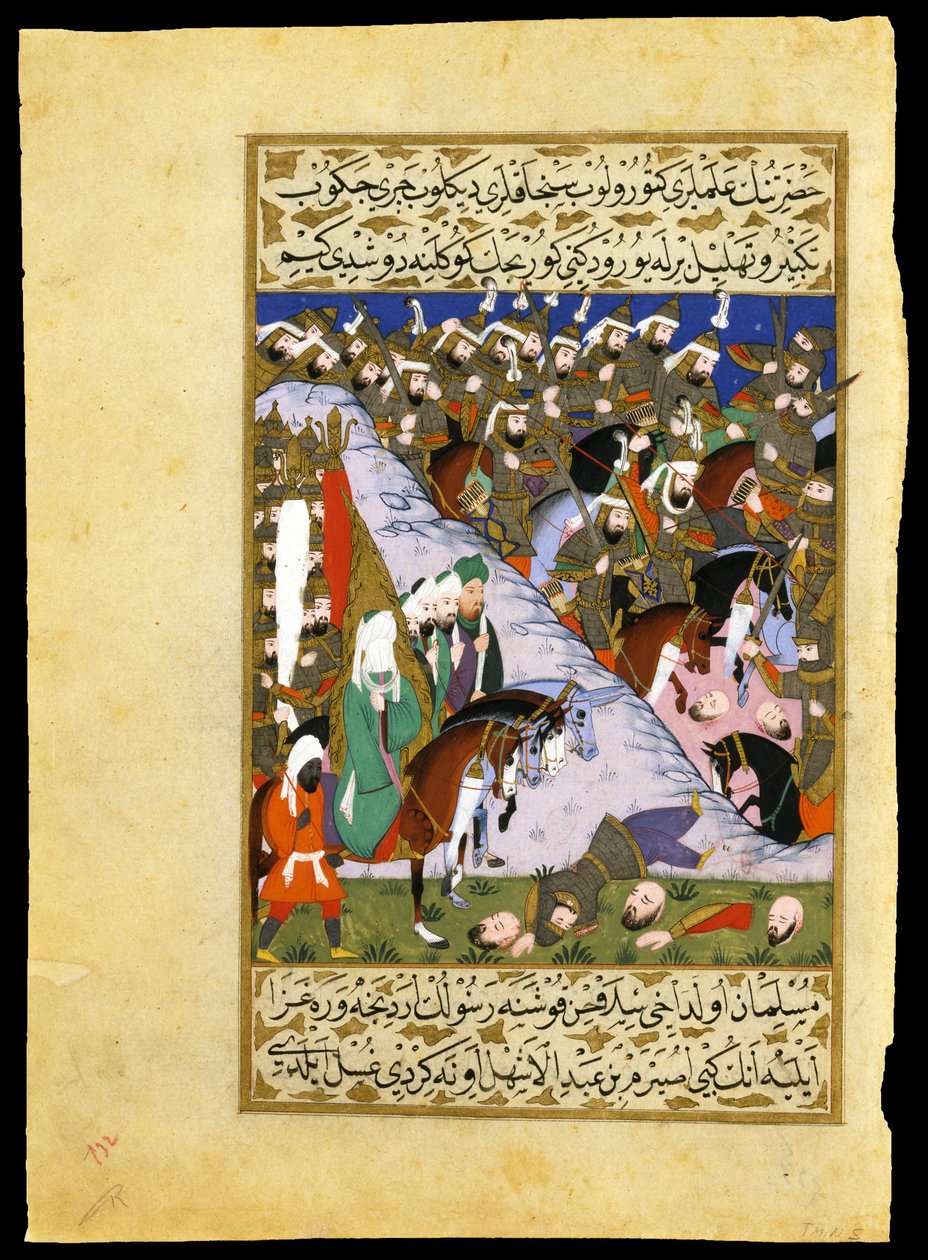 حضرتنك علملري كتورولوب سنجاقلري ديكلوب جري جكوب
تكبير و تهليل برله يورودكني كوريجك كوكلنه دوشدي كيم
مسلمان اولداخي سلاحن قوشنه رسولك اردنجه وره غزا
ايليه انك كبي اصيرم بن عبد الاشهل اونه كردي غسل ايلدي
132
R